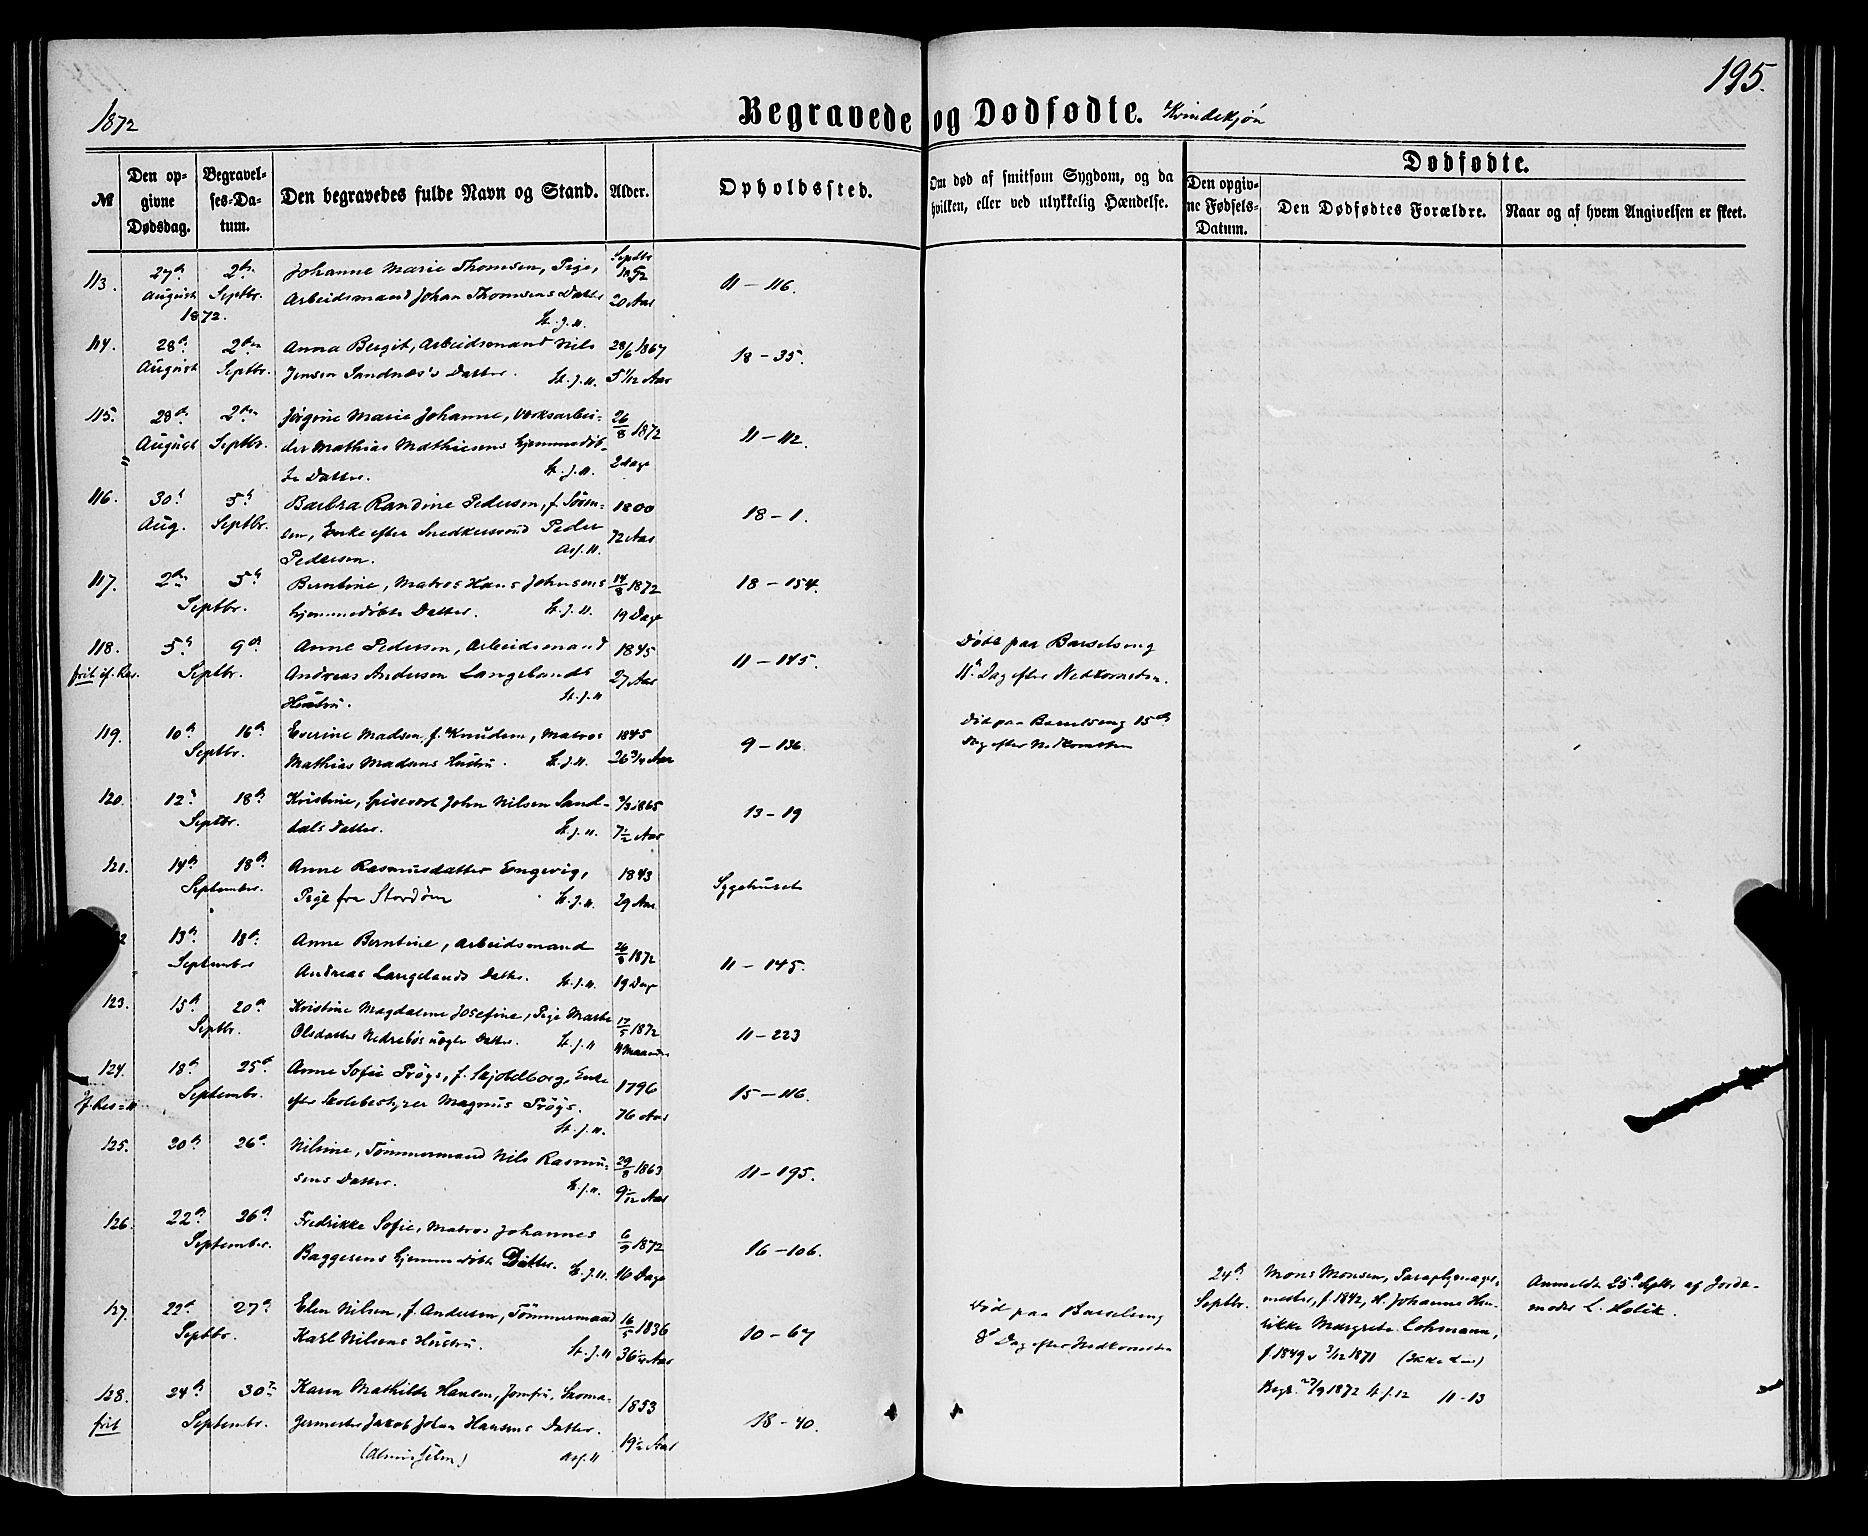 195.
1872
Begravede og Dødfødte. Kvindekjøn
№
Den opgivne Dødsdag.
Begravelses-Datum.
Den begravedes fulde Navn og Stand.
Alder.
Opholdssted.
Om død af smitsom Sygdom, og da hvilken, eller ved ulykkelig Hændelse.
Dødfødte.
Den opgivne Fødsels-Datum.
Den Dødfødtes Forældre.
Naar og af hvem Angivelsen er skeet.
113. 27de August 1872. 2den Septbr.
Johanne Marie Thomsen, Pige,
Arbeidsmand Johan Thomsens Datter
St. J. 11.
Septbr 1852
20 Aar
11 – 116.
114. 28de August 2den Septbr.
Anna Bergit, Arbeidsmand Nils
Jensen Sandnes's Datter. St. J. 11.
28/6 1867
5 1/12 Aar
18 – 35.
115. 28de August 2den Septbr.
Jørgine Marie Johanne, Værksarbei-
der Mathias Mathiesens hjemmedøb-
te Datter. St. J. 11.
26/8 1872
2 Dage
11 – 112.
116. 30te Aug. 5te Septbr.
Barbra Randine Pedersen, f. Sørens-
en, Enke efter Snedkersvend Peder
Pedersen. Asf. 11.
1800
72 Aar
18 – 1.
117. 2den 5te Septbr.
Berntine, Matros Hans Johnsens
hjemmedøbte Datter. St. J. 11.
14/8 1872
19 Dage
18 – 154.
118. 5te 9de Septbr.
frit ef. Res.
Anne Pedersen, Arbeidsmand
Andreas Andersen Langelands
Hustru. St. J. 11
1845
27 Aar
11 – 145.
Døde paa Barselseng
11te Dag efter Nedkomsten.
119. 10de 16de Septbr.
Everine Madsen, f. Knudsen, Matros
Mathias Madsens Hustru. St. J. 11.
1845
26 3/4 Aar
9 – 136.
Død paa Barselseng 15de
Dag efter Nedkomsten
120. 12te 18de Septbr.
Kristine, Spisevert John Nilsen Sand-
dals Datter. St. J. 11.
2/3 1865
7 1/2 Aar
13 – 19
121. 14de 18de September.
Anne Rasmusdatter Engevig,
Pige fra Stordøen St. J. 11.
1843
29 Aar
Sygehuset
2 13de 18de September
Anne Berntine, Arbeidsmand
Andreas Langelands Datter. St. J. 11.
26/8 1872
19 Dage
11 – 145.
123. 15de 20de Septbr.
Kristine Magdalene Josefine, Pige Marthe
Olsdatter Nedrebøs uægte Datter. St. J. 11
17/5 1872
4 Maaneder
11 – 223
124. 18de 25de Septembr.
ef. Res = 11
Anne Sofie Prøys, f. Skjoldborg, Enke
efter Skolebestyrer Magnus Prøys.
St. J. 11.
1796
76 Aar
15 – 116.
125. 20de 26de
Nilsine, Tømmermand Nils Rasmu-
sens Datter. St. J. 11.
29/8 1863
9 1/12 Aar
11 – 195.
126. 22de 26de September.
Fredrikke Sofie, Matros Johannes
Baggesens hjemmedøbte Datter. St. J. 11.
6/9 1872
16 Dage
16 – 106.
127. 22de 27de Septbr.
Elen Nilsen, f. Andersen, Tømmermand
Karl Nilsens Hustru. St. J. 11
16/5 1836
36 1/4 Aar
10 – 67
Død paa Barselseng
8de Dag efter Nedkomsten
24de Septbr.
Mons Monsen, Paraplymager-
mester, f. 1842, H. Johanne Hen-
rikke Margrete Lohmann,
f 1849 v 3/12 1871
Begr. 27/9 1872 St. J. 12 11 – 13
Anmeldt 25de Septbr. af Jorde-
moder L. Holck.
128. 24de 30te Septembr.
frit
Karen Mathilde Hansen, Jomfru, Skoma-
germester Jakob Johan Hansens Datter.
Asf. 11
1853
19 1/2 Aar
18 – 40.